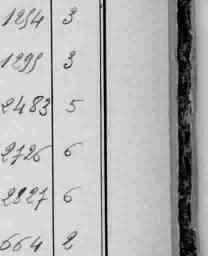 1254 3
1299 3
2483 5
2726 6
2827 6
664 2